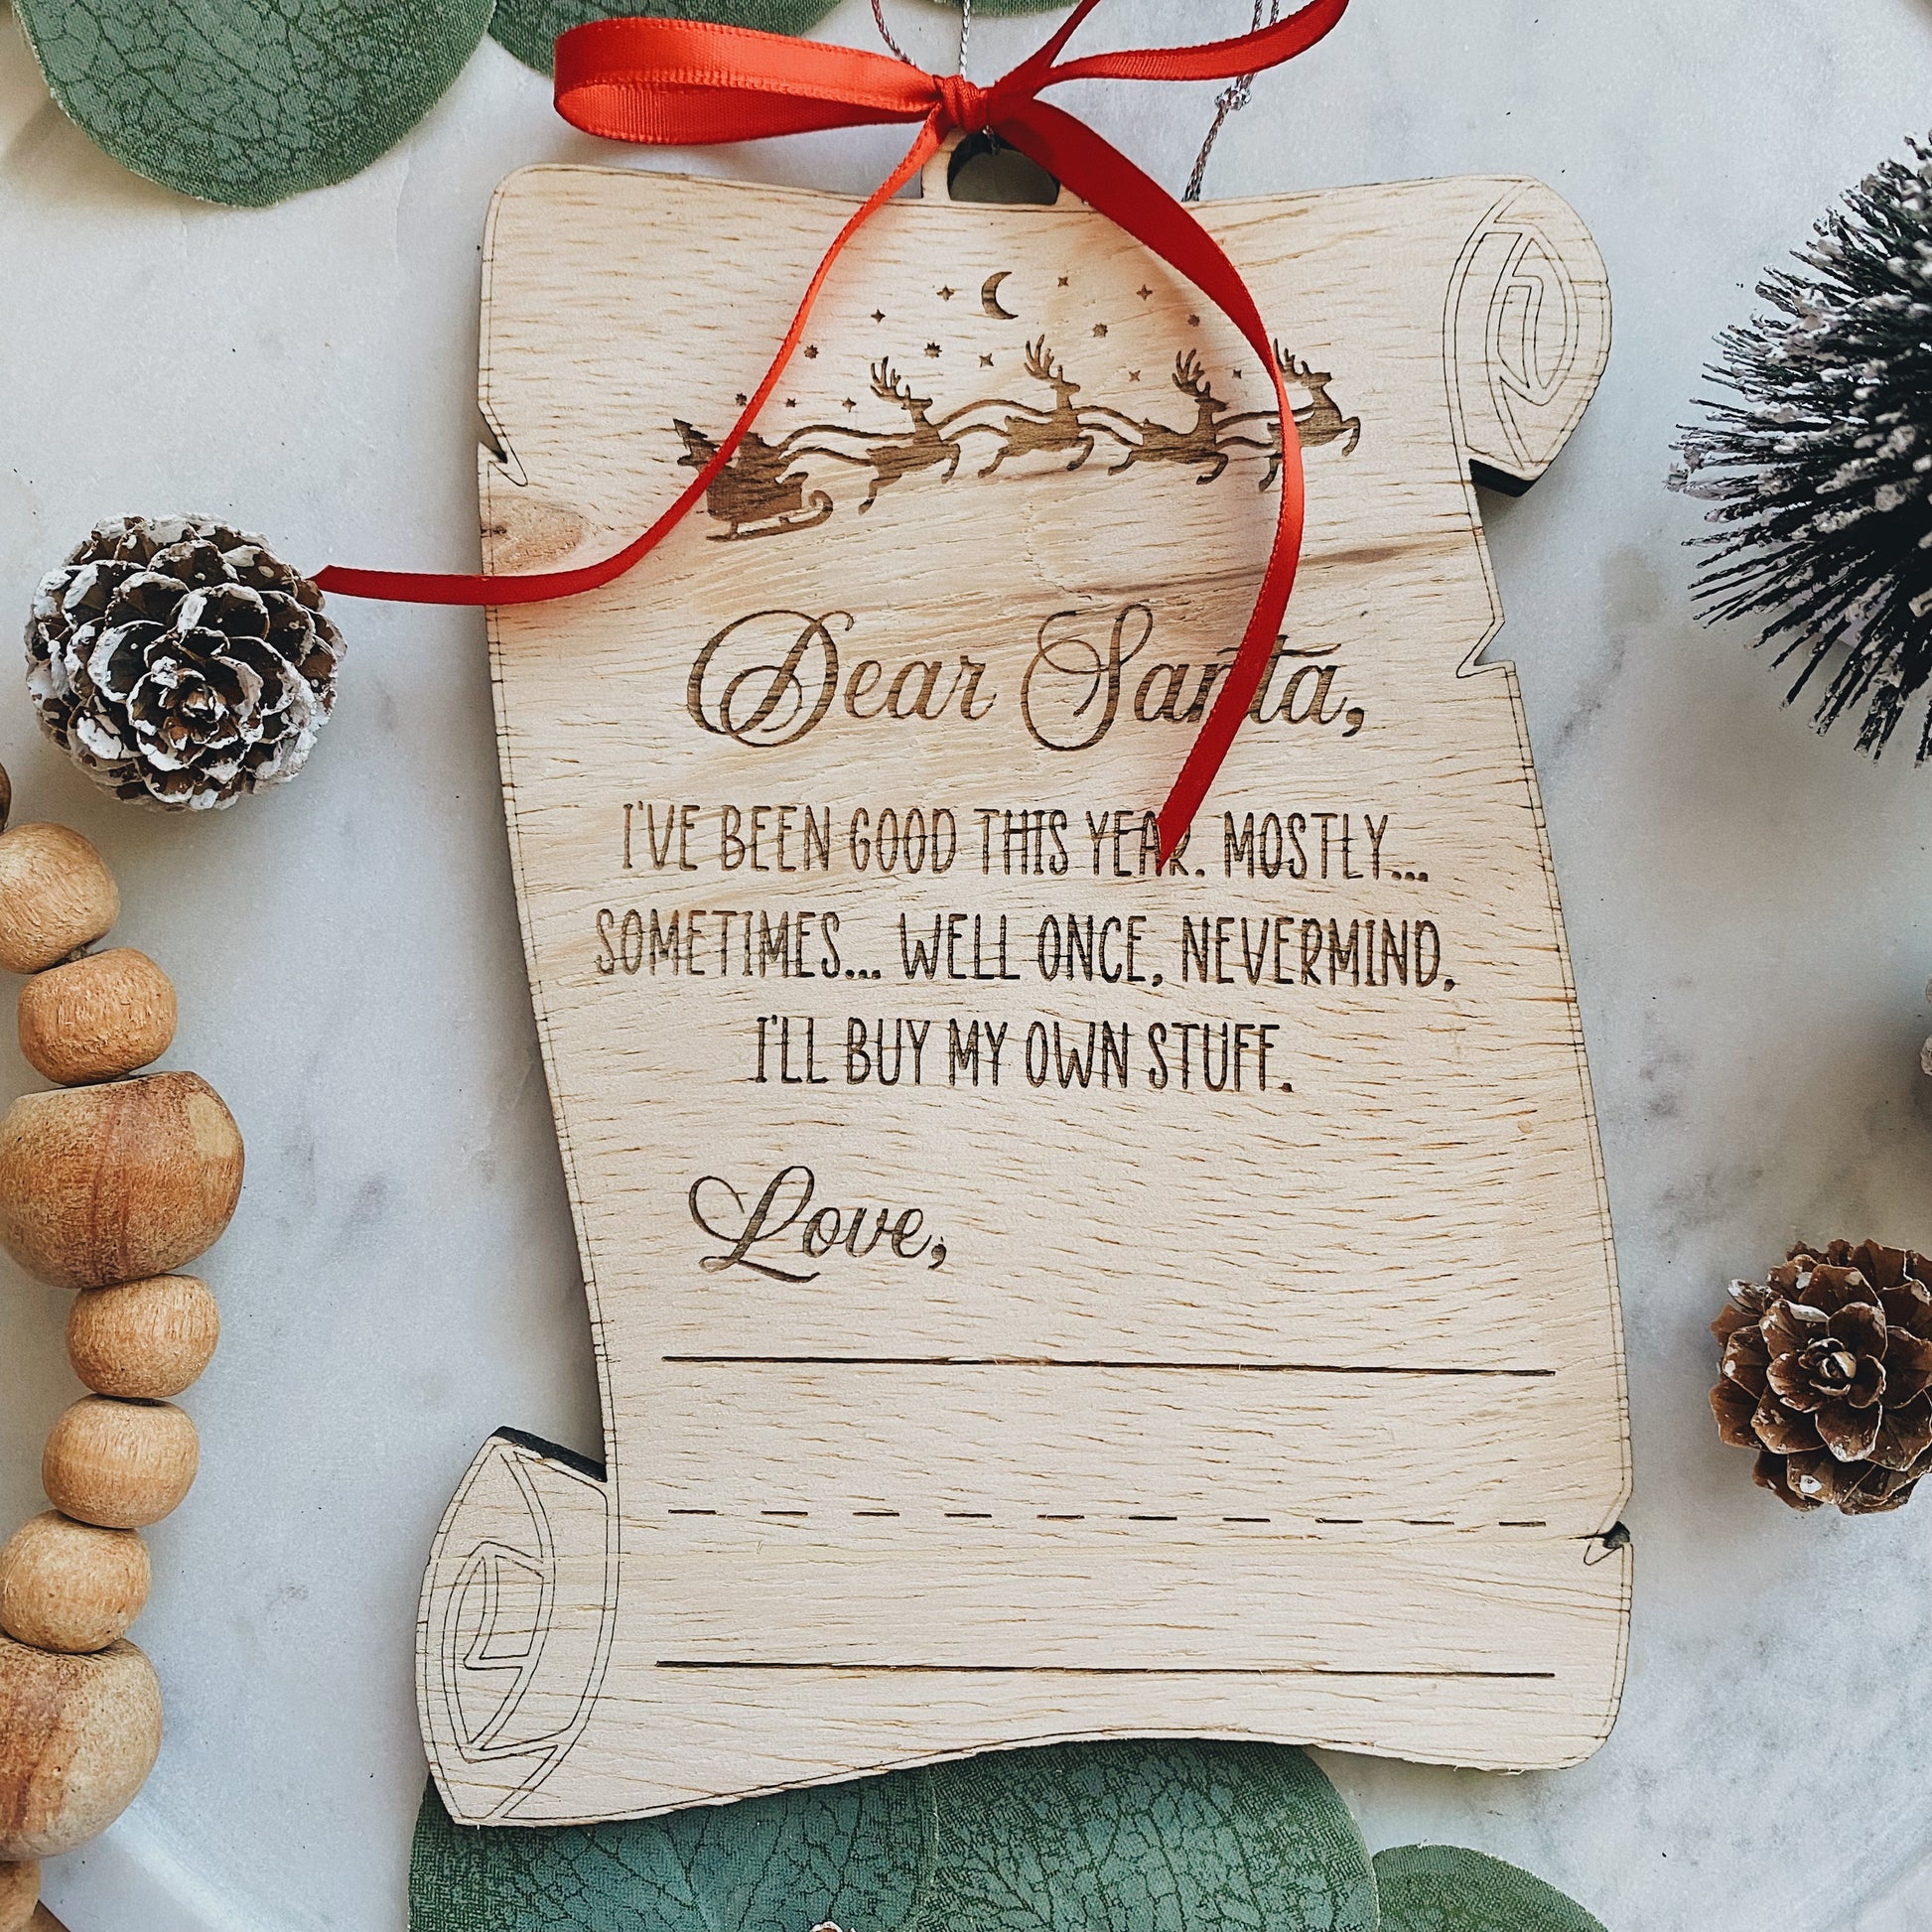 Dear Santa,
I'VE BEEN GOOD THIS YEAR. MOSTLY...
SOMETIMES... WELL ONCE, NEVERMIND.
I'LL BUY MY OWN STUFF.
Love,